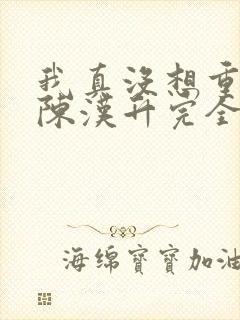 我真沒想重
陳漢升完全
海绵寶寶加油